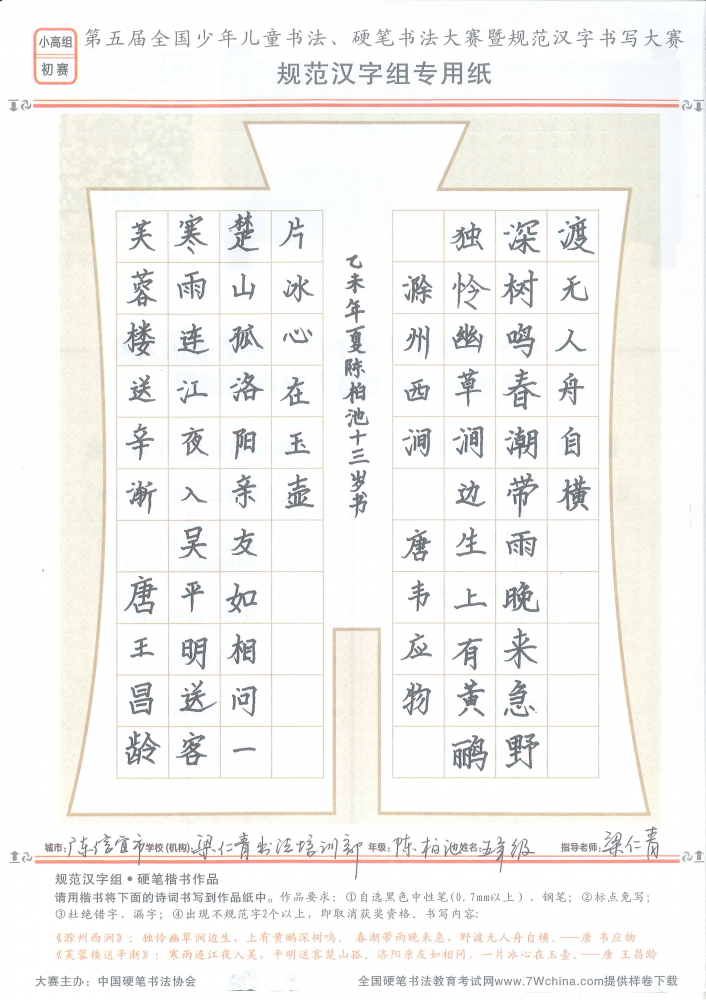 小高组
初赛
第五届全国少年儿童书法、硬笔书法大赛暨规范汉字书写大赛
规范汉字组专用纸
芙蓉楼送辛渐 唐王昌龄
寒雨连江夜入吴平明送客
楚山孤洛阳亲友如相问一
片冰心在玉壶
乙未年夏陈柏池十三岁书
滁州西涧 唐韦应物
独怜幽草涧边生上有黄鹂
深树鸣春潮带雨晚来急野
渡无人舟自横
城市:广东信宜市学校(机构):梁仁青书法培训部 年级:陈柏池姓名:五年级 指导老师:梁仁青
规范汉字组•硬笔楷书作品
请用楷书将下面的诗词书写到作品纸中。作品要求：①自选黑色中性笔(0.7mm以上)、钢笔；②标点免写；
③杜绝错字、漏字；④出现不规范字2个以上，即取消获奖资格。书写内容：
《滁州西涧》：独怜幽草涧边生，上有黄鹂深树鸣。 春潮带雨晚来急，野渡无人舟自横。——唐 韦应物
《芙蓉楼送辛渐》：寒雨连江夜入吴，平明送客楚山孤。洛阳亲友如相问，一片冰心在玉壶。——唐 王昌龄
大赛主办：中国硬笔书法协会
全国硬笔书法教育考试网www.7Wchina.com提供样卷下载